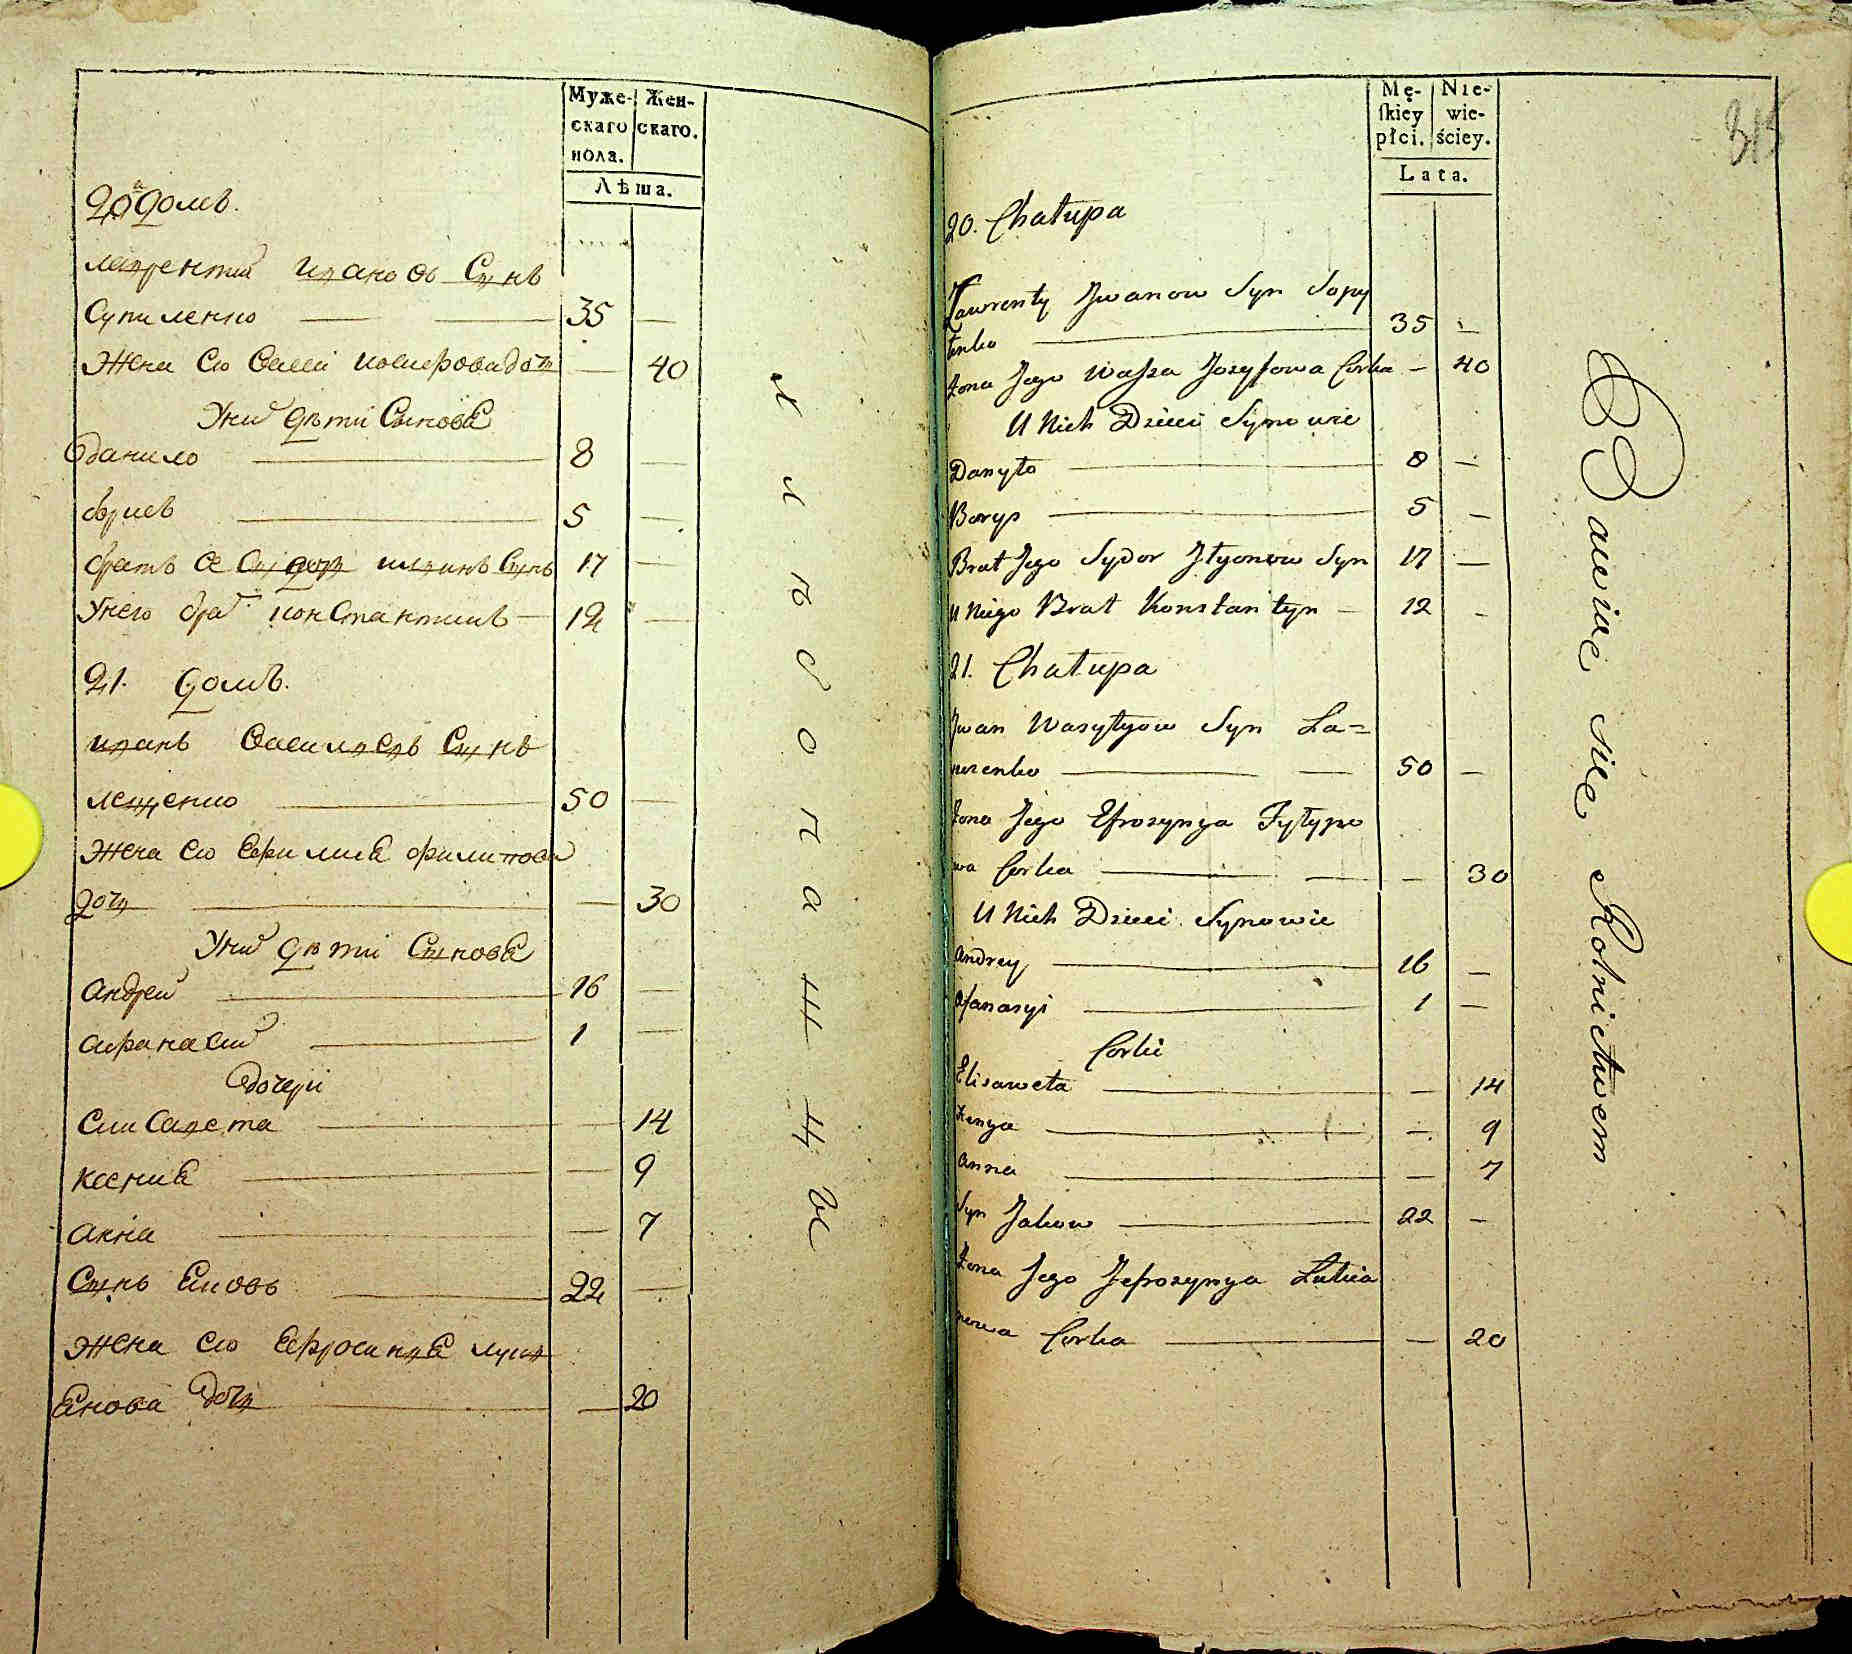 Муже- Жен-
скаго скаго.
пола.
Лѣта.
20й Домъ.
Лаврентий Иванов Сынъ
Супиленко 35 —
Жена его Васса Иосифова дочь — 40
У них дѣти Сыновья
Данило 8 —
Борисъ 5 —
братъ его Сидор Сынъ 17 —
У него брат Константинъ 12 —
21. домъ.
Иванъ Васильевъ Сынъ
Лещенко 50 —
Жена его Филипова
дочь — 30
У них дѣти Сыновья
Андрей 16 —
Афанасий 1 —
Дочери
Елисавета — 14
Ксения — 9
Анна — 7
Сынъ Яковъ 22 —
Жена его Ефросиния Луки
янова дочь — 20
Хлѣбопашцы
315
Mę- Nie-
skiey wie-
płci. ściey.
Lata.
20. Chałupa
Ławrenty Jwanow Syn Sopy
łenko 35 —
Żona Jego Wassa Jozyfowa Corka — 40
U Nich Dzieci Synowie
Danyło 8 —
Borys 5 —
Brat Jego Sydor Syn 17 —
U Niego Brat Konstantyn — 12 -
21. Chałupa
Jwan Wasylyow Syn La=
50 —
Żona Jego Efrosynya Fylypo
wa Corka — 30
U Nich Dzieci Synowie
Andrey 16 —
Afanasyi 1 —
Corki
Elisaweta — 14
Xenya — 9
Anna — 7
Syn Jakow 22 —
Żona Jego Jefrosynya Lukia
nowa Corka — 20
Bawiąc się Rolnictwem